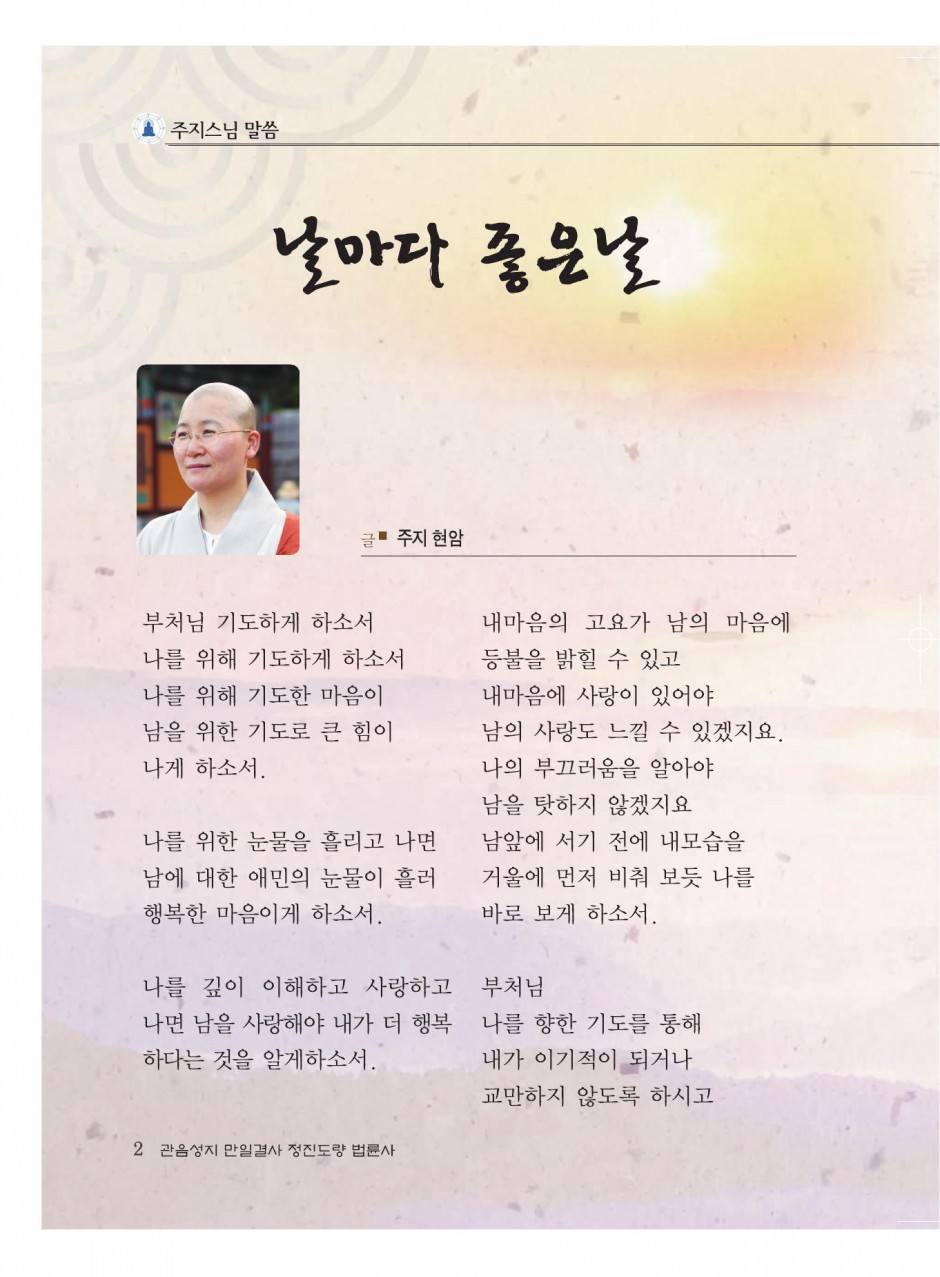 주지스님 말씀
날마다 좋은날
글■ 주지 현암
부처님 기도하게 하소서
나를 위해 기도하게 하소서
나를 위해 기도한 마음이
남을 위한 기도로 큰 힘이
나게 하소서.
나를 위한 눈물을 흘리고 나면
남에 대한 애민의 눈물이 흘러
행복한 마음이게 하소서.
나를 깊이 이해하고 사랑하고
나면 남을 사랑해야 내가 더 행복
하다는 것을 알게하소서.
내마음의 고요가 남의 마음에
등불을 밝힐 수 있고
내마음에 사랑이 있어야
남의 사랑도 느낄 수 있겠지요.
나의 부끄러움을 알아야
남을 탓하지 않겠지요
남앞에 서기 전에 내모습을
거울에 먼저 비춰 보듯 나를
바로 보게 하소서.
부처님
나를 향한 기도를 통해
내가 이기적이 되거나
교만하지 않도록 하시고
2 관음성지 만일결사 정진도량 법륜사